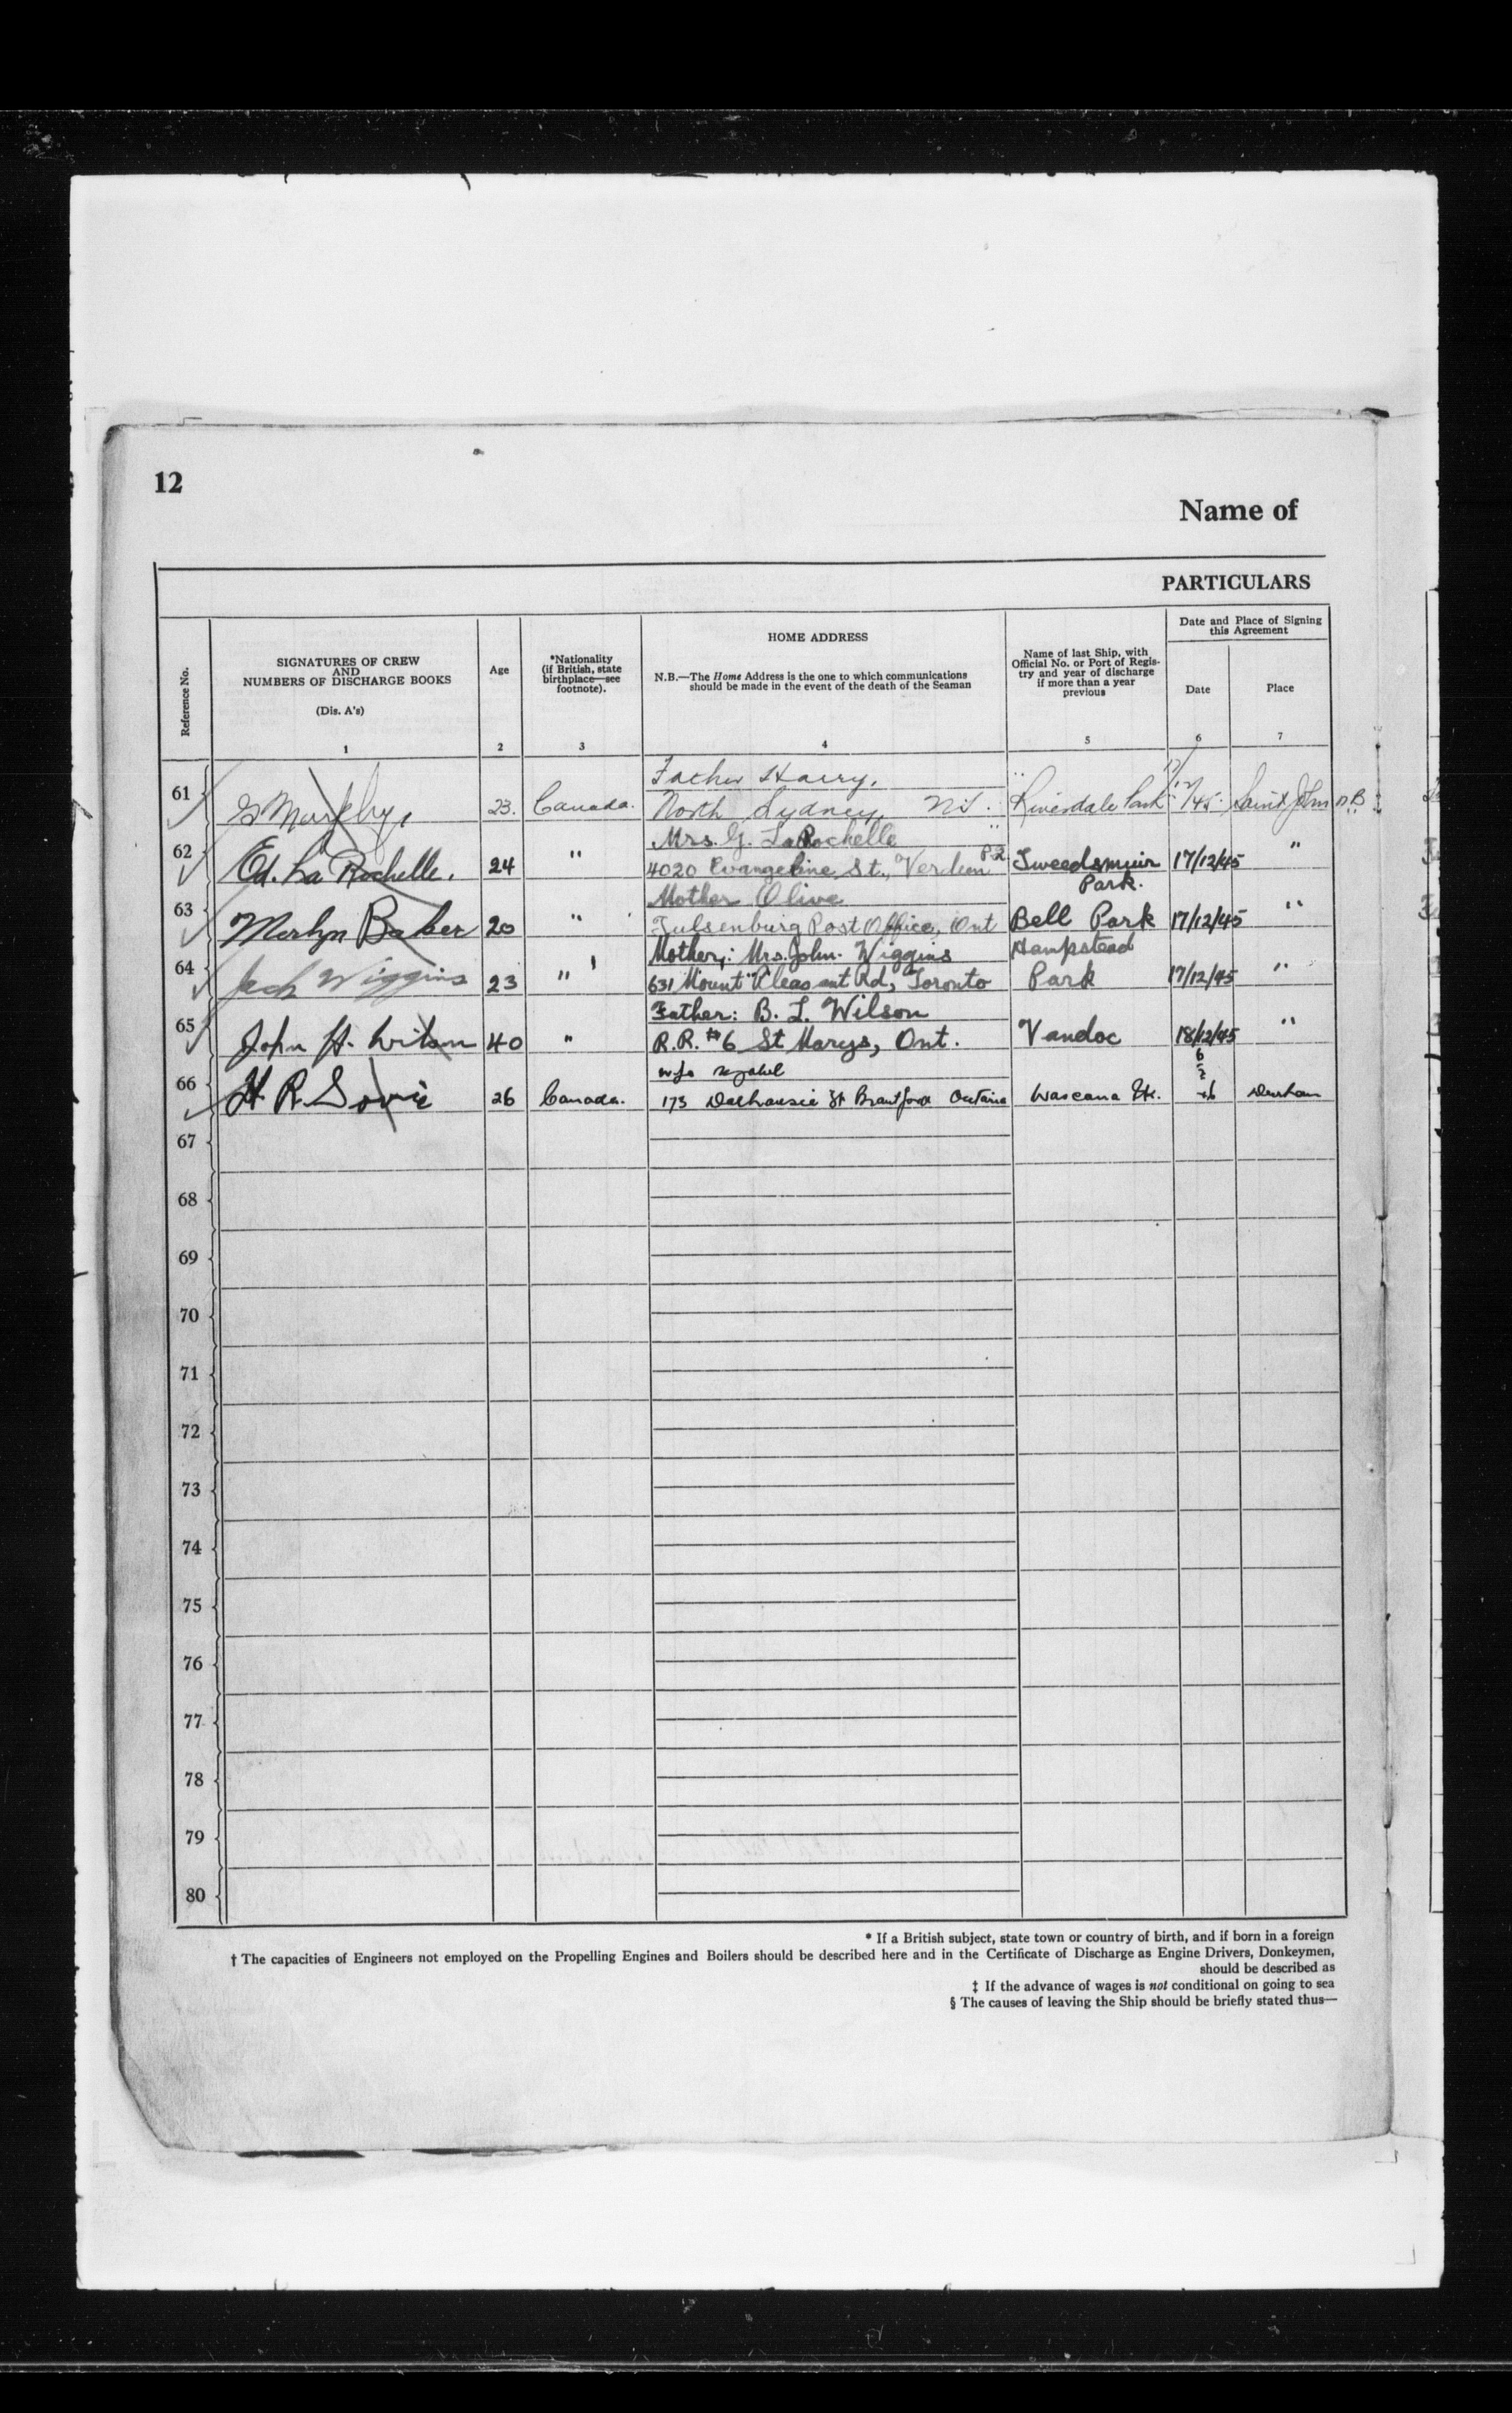 12
Name of
PARTICULARS
Reference No.
SIGNATURES OF CREW
AND
NUMBERS OF DISCHARGE BOOKS
(Dis. A's)
1
Age
2
*Nationality
(if British, state
birthplace—see
footnote).
3
HOME ADDRESS
N.B.—The Home Address is the one to which communications
should be made in the event of the death of the Seaman
4
Name of last Ship, with
Official No. or Port of Regis-
try and year of discharge
if more than a year
previous
5
Date and Place of Signing
this Agreement
Date
6
Place
7
Father Harry,
61 G Murphy, 23. Canada. North Sydney, N.S. Riverdale Park Saint John N.B
Mrs. G. LaRochelle
62 Ed. La Rochelle. 24 " 4020 Evangeline St., Verdun P.Q Tweedsmuir 17/12/45 "
Park.
Mother Olive
63 Merlyn Baker 20 " Tulsenburg Post Office, Ont Bell Park 17/12/45 "
Mother: Mrs. John. Wiggins Hampstead
64 Jack Wiggins 23 " 631 Mount Pleasant Rd, Toronto Park 17/12/45 "
Father: B. L. Wilson
65 John H. Wilson 40 " R.R. #6 St Marys, Ont. Vandoc 18/12/45 "
66 H. R. 26 Canada. 173 Dalhousie St Brantford Ontario Wascana Pk. Durban
67
68
69
70
71
72
73
74
75
76
77
78
79
80
* If a British subject, state town or country of birth, and if born in a foreign
† The capacities of Engineers not employed on the Propelling Engines and Boilers should be described here and in the Certificate of Discharge as Engine Drivers, Donkeymen,
should be described as
‡ If the advance of wages is not conditional on going to sea
§ The causes of leaving the Ship should be briefly stated thus—